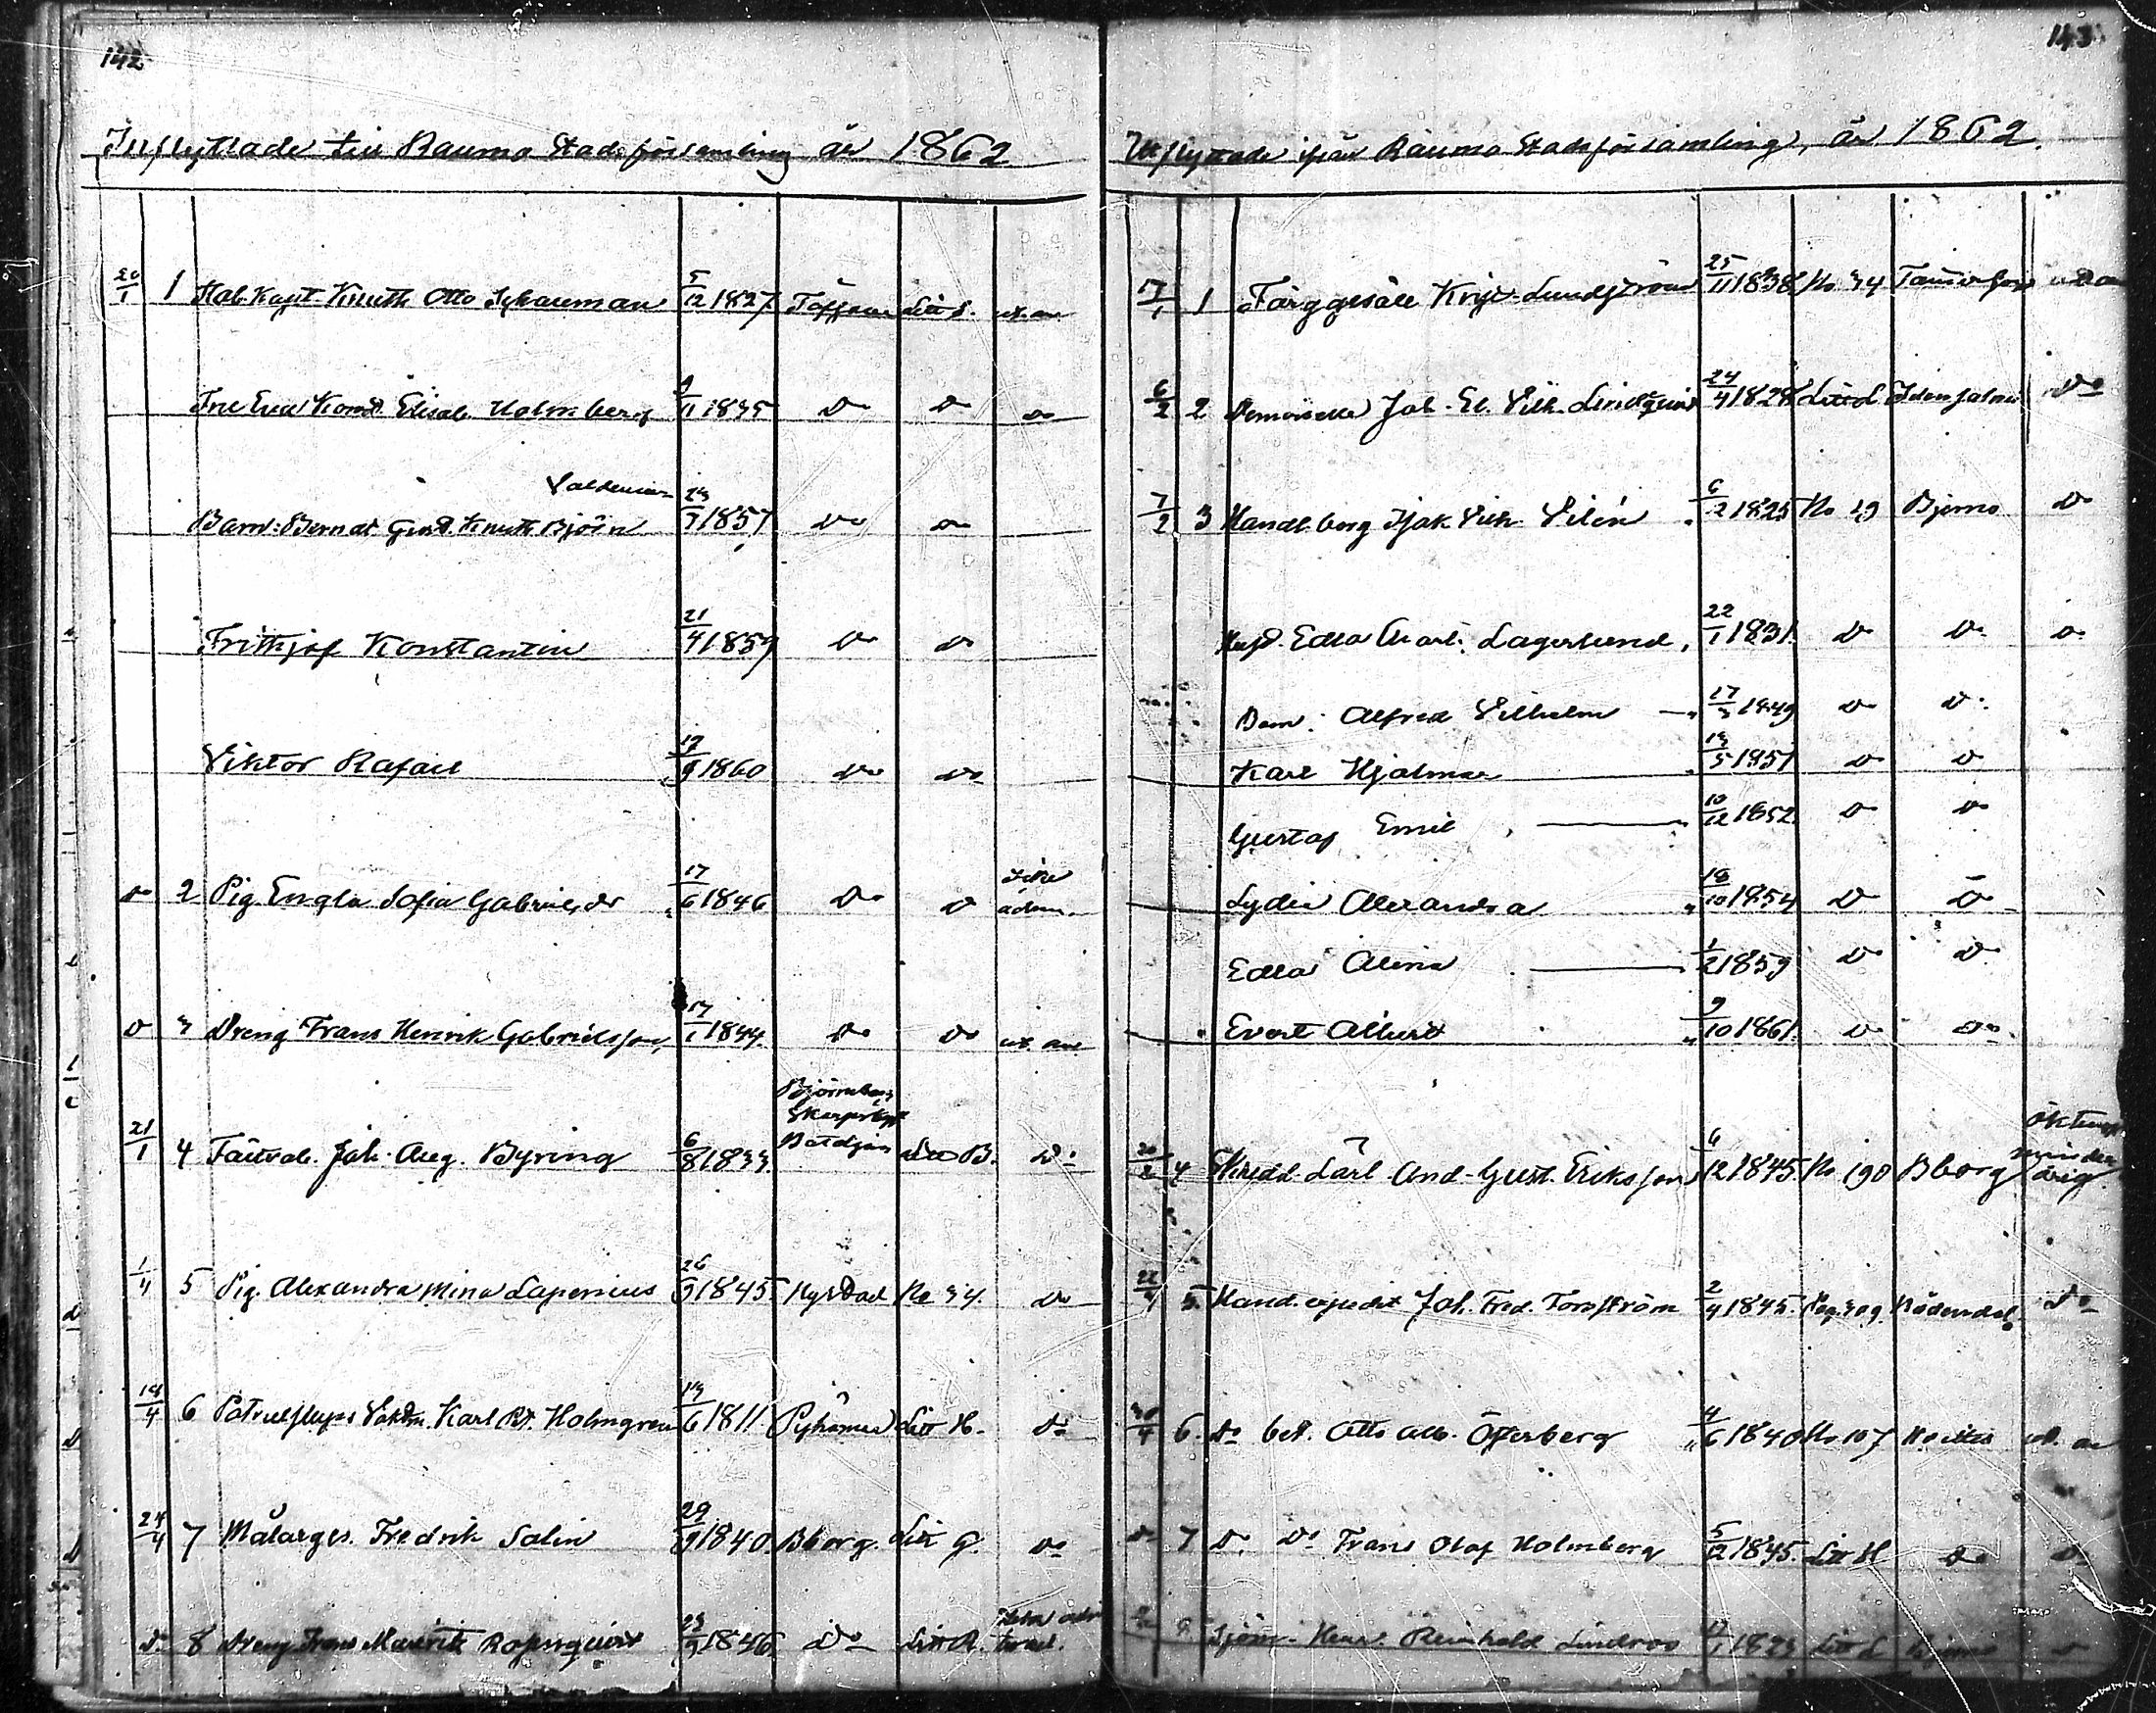 142
Inflyttade till Raumo Stadsförsamling år 1862
20/1 1 Stab. Kapt. Knuth Otto Schauman 5/12 1827 Töffsala Litt L. utan
Fru Eva Konst. Elisab. Holmberg 1/11 1835 Do Do Do
Valdemar
Barn: Berndt Gust. Knuth Björn 1857 Do Do
Frithjof Konstantin 21/4 1859 Do Do
Viktor Rafael 17/9 1860 Do Do
Do 2 Pig. Engla Sofia Gabrielsdr 17/6 1846 Do Do icke
ådöm.
Do 3 Dreng Frans Henrik Gabrielsson, 17/1 1844 Do Do
Björneborg
Skarpsky
Bataljon
21/1 4 Fältväb. Joh. Aug. Byring 6/8 1833 Litt B. Do
1/4 5 Pig. Alexandra Mina Lapenius 26/9 1845 Nystad No 34. Do
14/4 6 Vaktm. Karl Holmgren 6 1811 Pyhämaa Litt H. Do
24/4 7 Målarges. Fredrik Salin 29/9 1840. Bborg. Litt G. Do
Do 8 Dreng Frans Mauritz Rosenqvist 23/9 1846. Do Litt R.
143
Utflyttade ifrån Raumo Stadsförsamling, år 1862.
17/1 1 Färggesäll Lundström 25/11 1838 No 34 Tammerfors
6/2 2 Demoiselle Joh. El. Vilh. Lindqvist 24/4 1828 Litt L Idensalmi Do
7/2 3 Handl. borg Isak Vilh. Vilén 6/2 1825 No 19 Bjerno Do
Hust. Edla Charl. Lagerlund, 22/1 1831. Do Do Do
Barn: Alfred Vilhelm 17/3 1849 Do Do
Karl Hjalmar 1851 Do Do
Gustaf Emil 10/12 1852. Do Do
Lydia Alexandra 18/10 1854 Do Do
Edla Alina 1/2 1859 Do Do
Evert Albert 9/10 1861. Do Do
20/2 4 Skredd. Lärl. And. Gust. Eriksson 12 1845. No 190 Bborg
minder
årig
22/4 5. Hand. expedit Joh. Fred. Forsström 2/4 1845. Pag. 309. Nådendal. Do
30/4 6. Do bet. Otto Alb. Öfverberg 4/6 1840 No 107
Do 7 Do Do Frans Olof Holmberg 5/12 1845. Litt H Do Do
8 Sjöm. Henr. Reinhold Lindroos 1823 Litt L